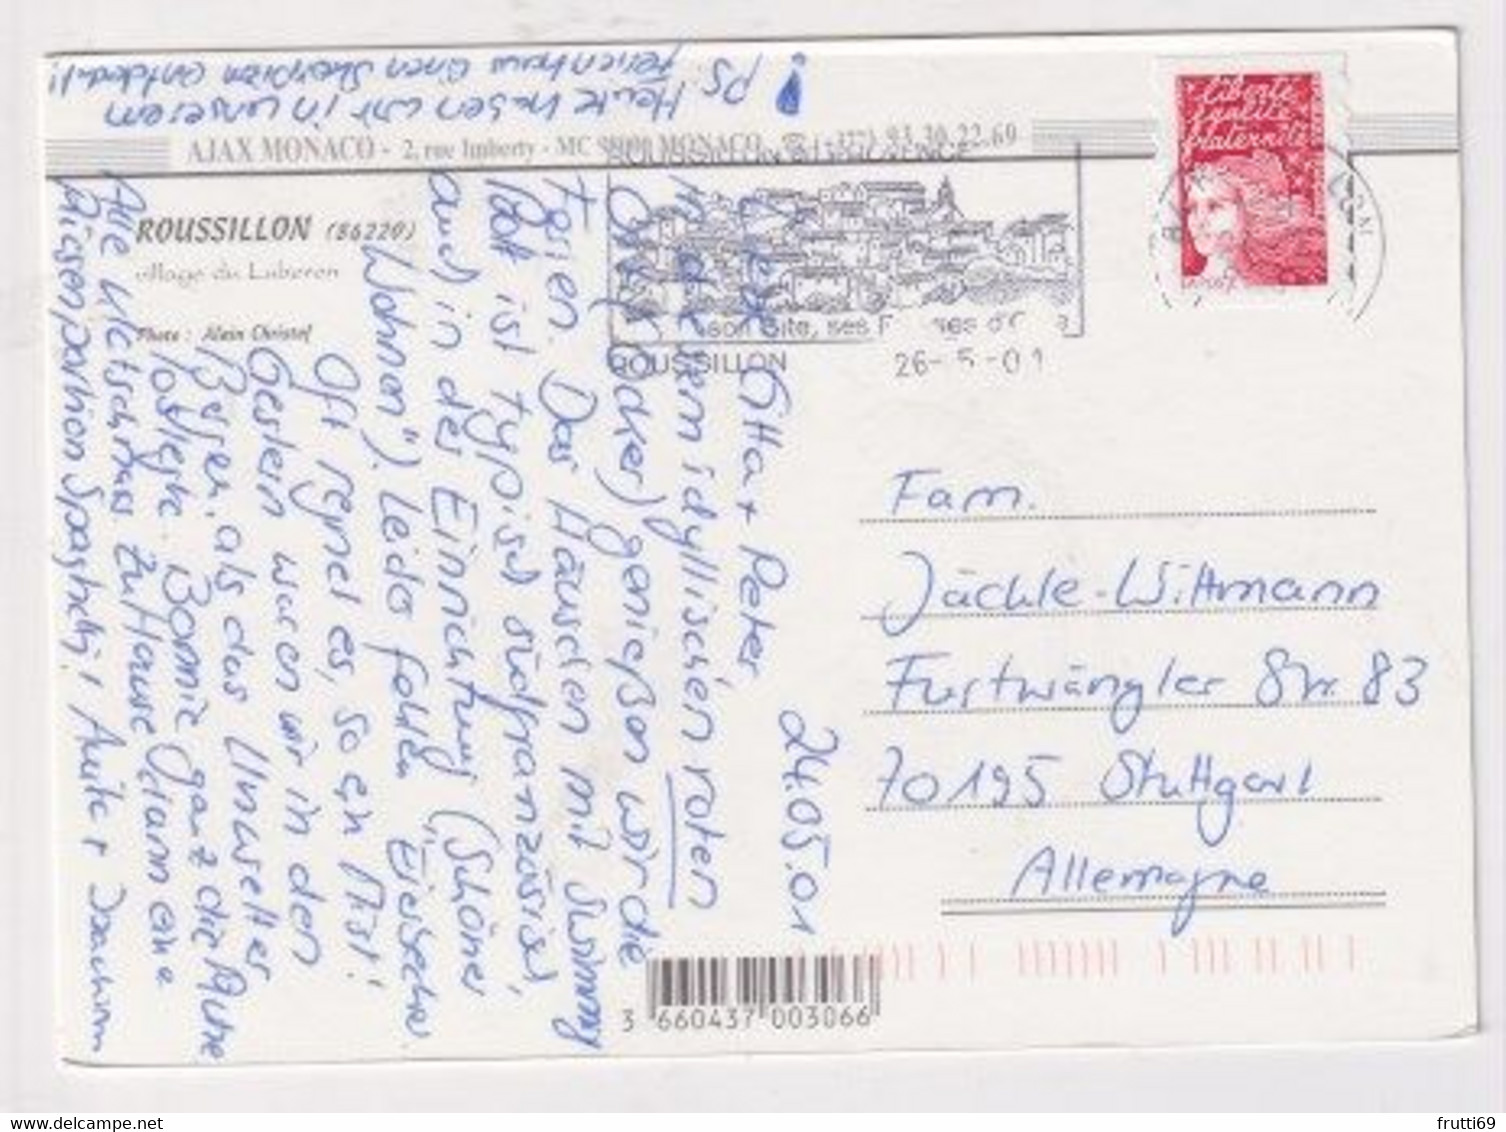 PS: Heute haben wir in unserem
Ferienhaus einen Skorpion entdeckt!
AJAX MONACO - 2, rue Imberty - MC 98000 MONACO - ☎ (+377) 93.30.22.69
ROUSSILLON (86220)
village du Luberon
Photo : Alain Christof
Liberté
Egalité
Fraternité
son Site, ses
ROUSSILLON
26- 5 -01
24.05.01
Gitta + Peter,
idyllischen roten
Ocker) genießen wir die
Ferien. Das Häuschen mit Swimming
Pool ist typisch südfranzösisch,
auch in der Einrichtung ("Schöner
Wohnen"). Leider
Oft regnet es, so ein Mist!
Gestern waren wir in den
Besser, als das Unwetter
ganz die Ruhe
Alle zu Hause eine
Riesenportion Spaghetti! Anita +
Fam.
Jäckle-Wittmann
Furtwängler Str. 83
70195 Stuttgart
Allemagne
3 660437 003066
frutti69